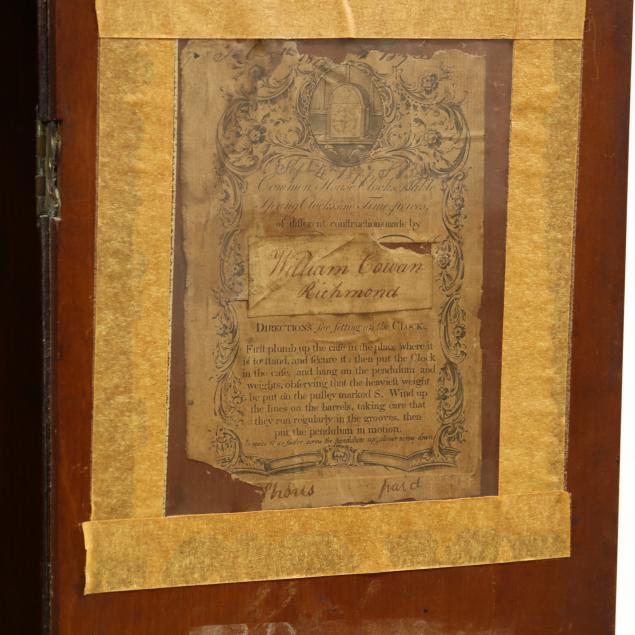 Common House Clocks, Table
Spring Clocks and Time-pieces,
of different constructions made by
William Cowan
Richmond
DIRECTIONS for setting up the CLOCK.
First plumb up the case in the place where it
is to stand, and secure it: then put the Clock
in the case, and hang on the pendulum and
weights, observing that the heaviest weight
be put on the pulley marked S. Wind up
the lines on the barrels, taking care that
they run regularly in the grooves, then
put the pendulum in motion.
To make it go faster screw the pendulum up, slower screw down
paid